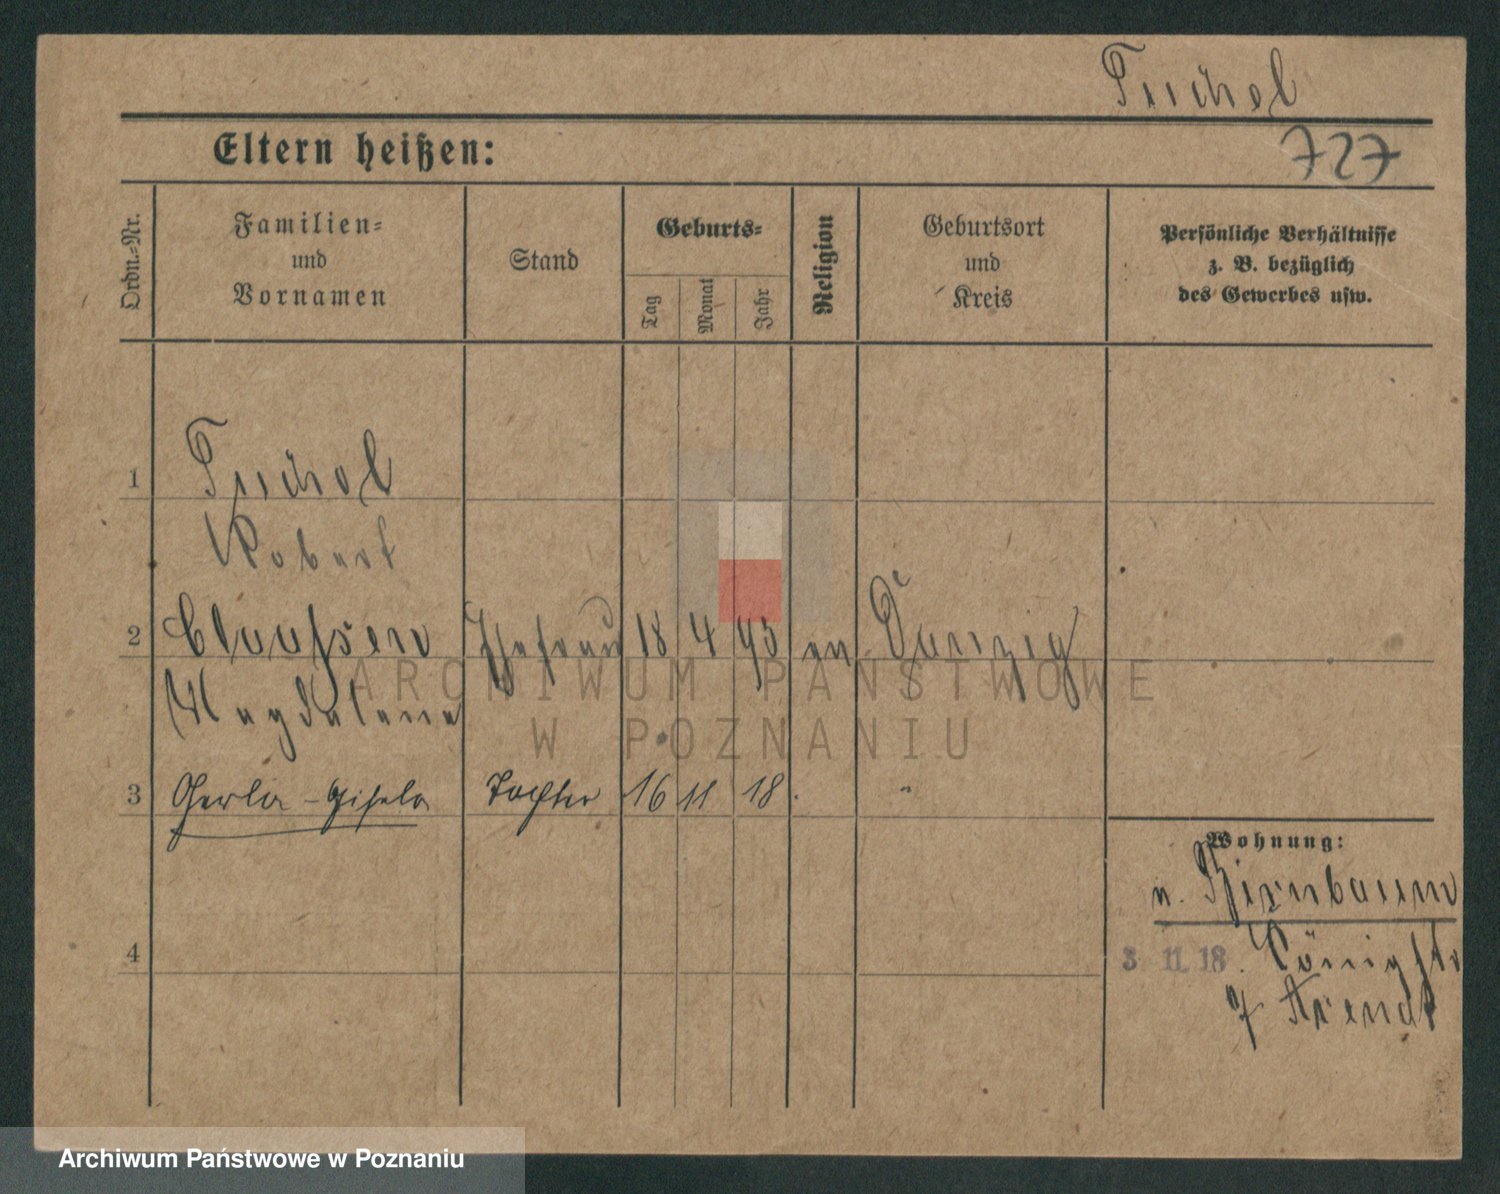 Tuchel
727
Eltern heißen:
Ordn.-Nr.
Familien-
und
Vornamen
Stand
Geburts-
Tag
Monat
Jahr
Religion
Geburtsort
und
Kreis
Persönliche Verhältnisse
z. B. bezüglich
des Gewerbes usw.
1 Tuchel
Robert
2 Claaßen Ehefrau 18 4 95 ev Danzig
Magdalena
3 Gerla - Gisela Tochter 16 11 18 "
4
Wohnung:
n. Birnbaum
3 11 18. Königstr
7 Arendt
ARCHIWUM PAŃSTWOWE
W POZNANIU
Archiwum Państwowe w Poznaniu